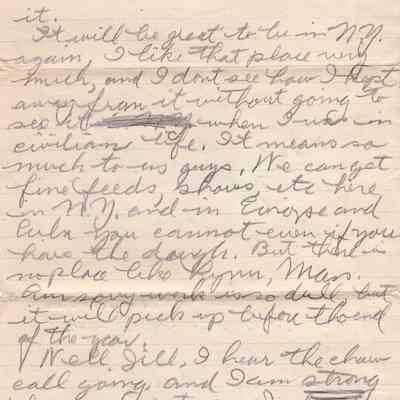 it.
It will be great to be in N.Y.
again, I like that place very
much, and I dont see how I kept
away from it without going to
see it when I was in
civilian life. It means so
much to us guys. We can get
fine feeds, shows, etc here
in N.Y. and in Europe and
you cannot even if you
have the dough. But there is
no place like Lynn, Mass.
Am sorry work is so dull but
it will pick up before the end
of the year.
Well Jill, I hear the chow
call going and I am strong